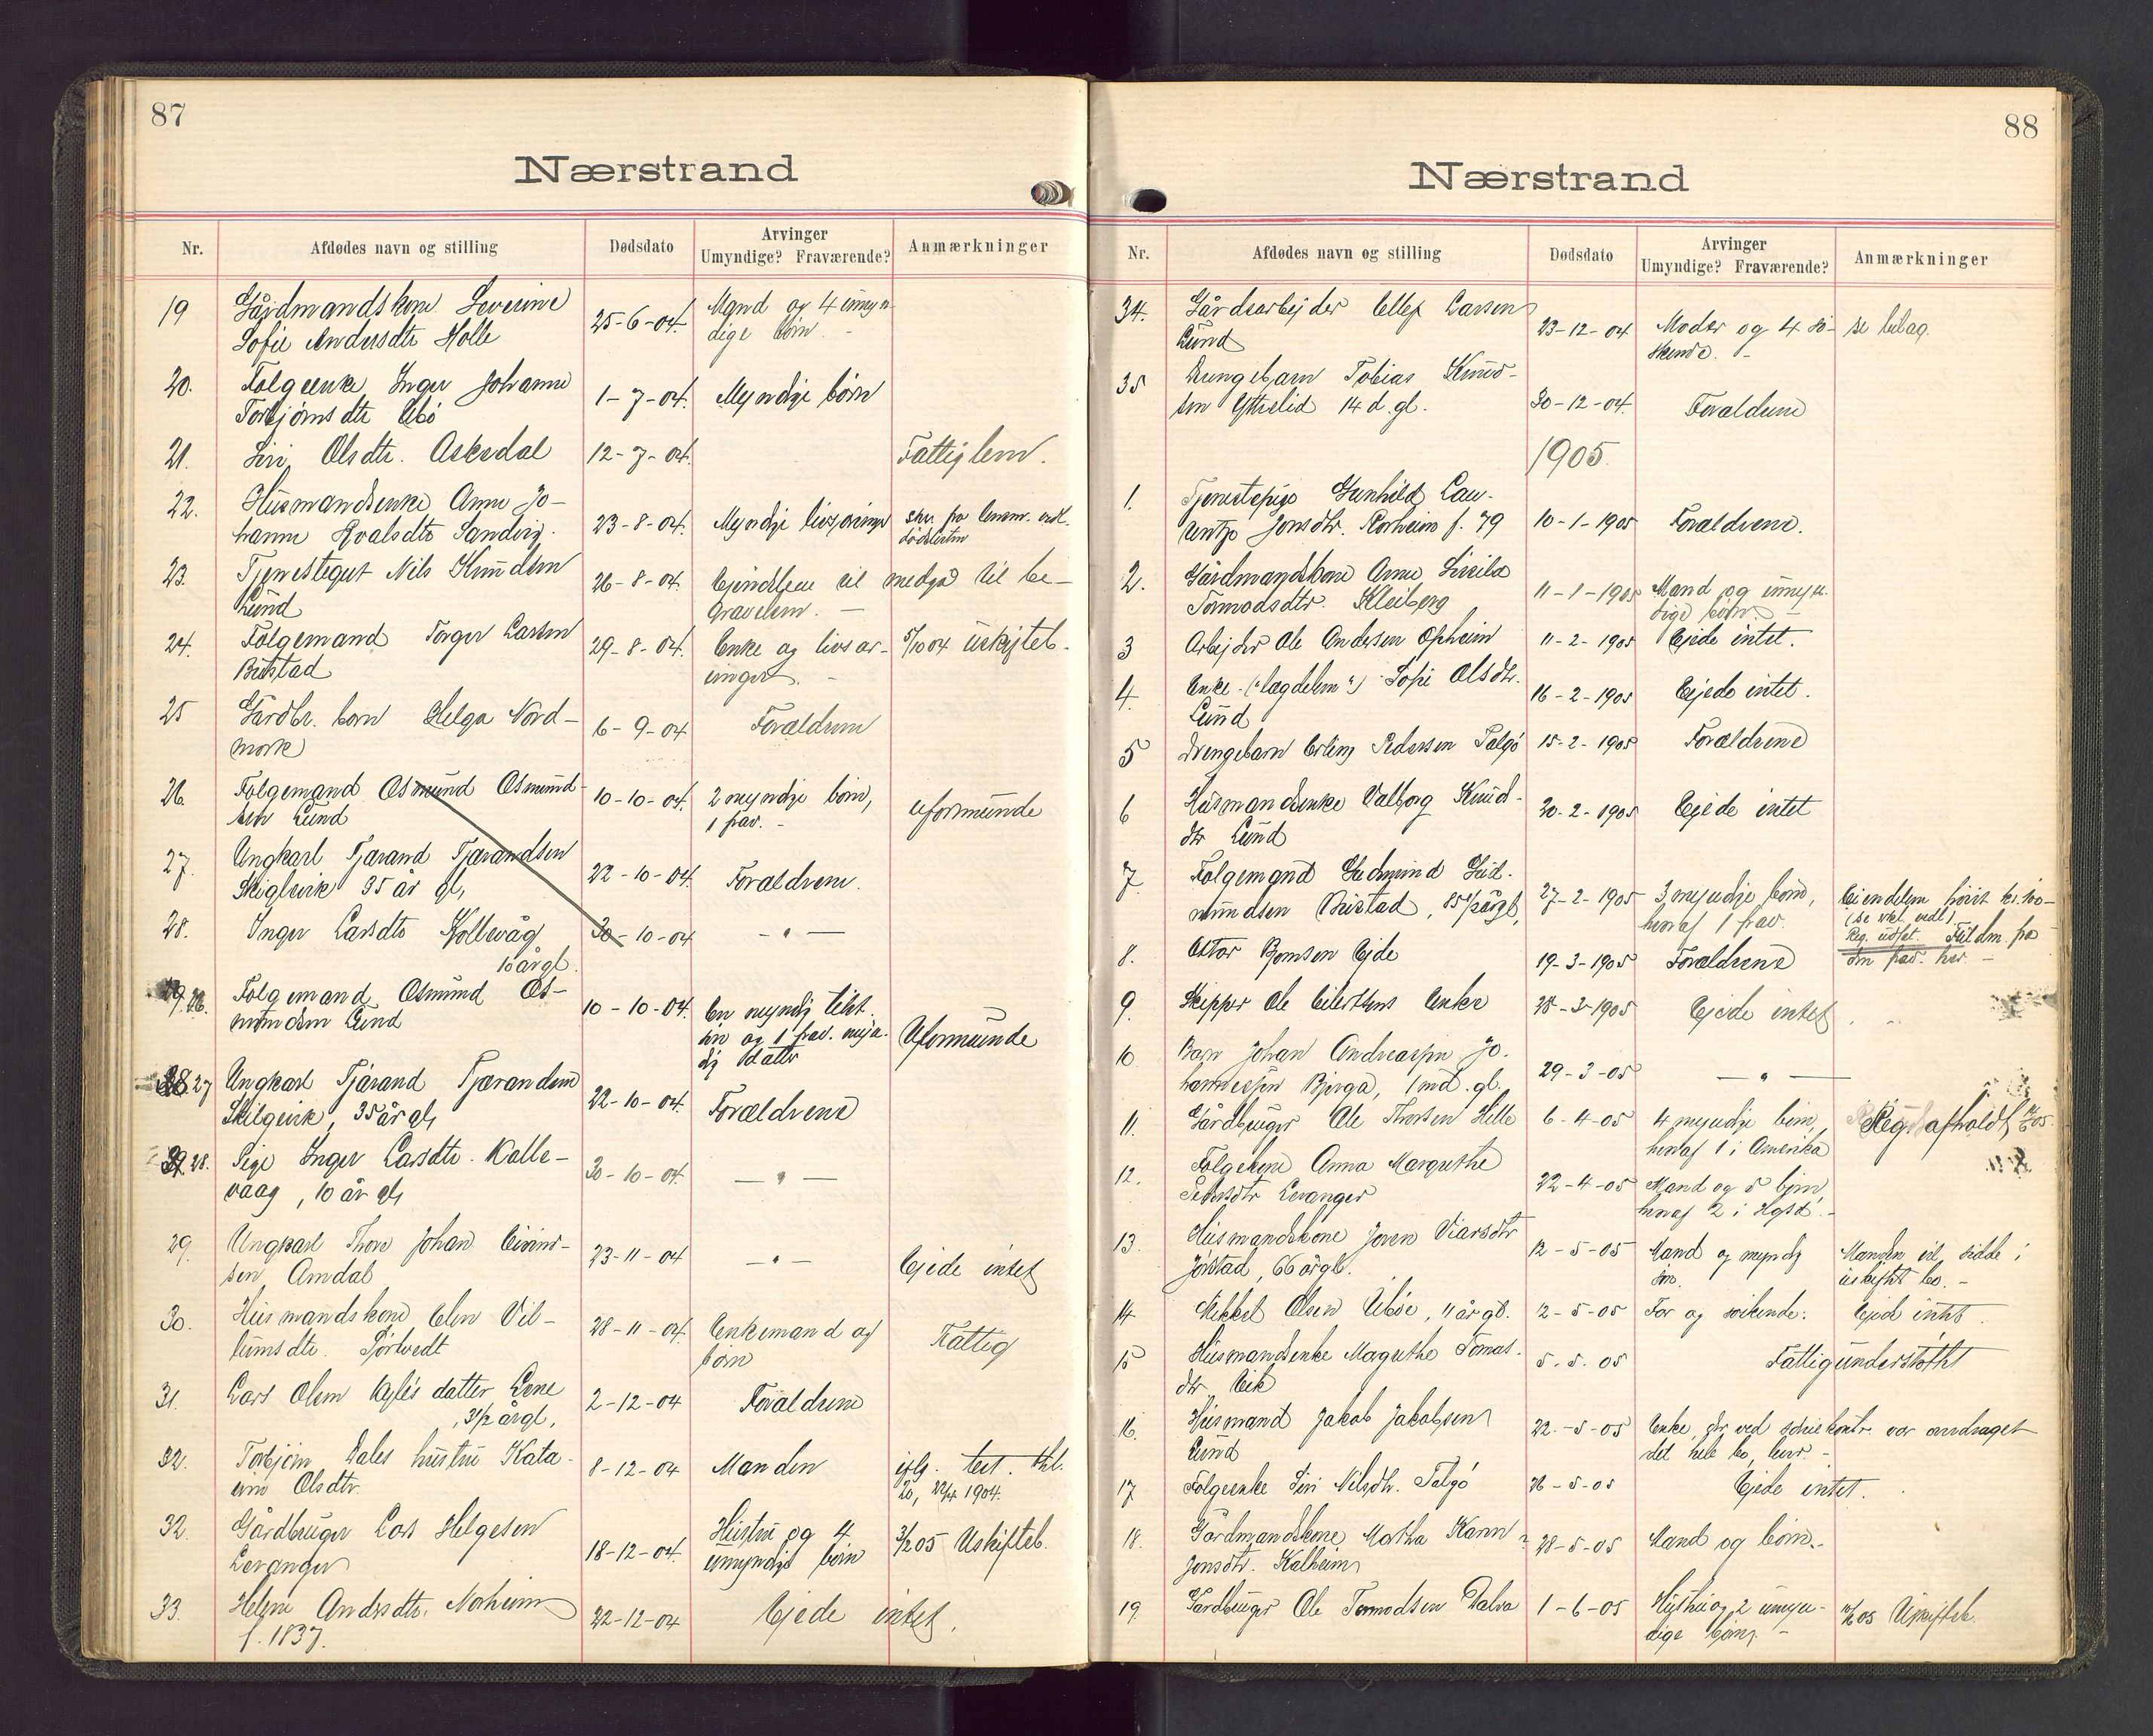 87
Nærstrand
Nr. Afdødes navn og stilling Dødsdato Arvinger Umyndige? Fraværende? Anmærkninger
19 Gårdmandskone Severine 25-6-04. Mand og 4 umyn-
Sofie Andersdtr Holle dige børn.
20. Følgeenke Inger Johanne 1-7-04. Myndige børn
Torbjørnsdtr Ubø
21. Siri Olsdtr. Askedal 12-7-04. Fattiglem.
22. Husmandsenke Anne Jo- 23-8-04. Myndige livsarvinger
hanne Roalsdtr Sandvig.
23. Tjenestegut Nils Knudsen 26-8-04. Eiendelene vil medgå til be-
Lund gravelsen. —
24. Følgemand Torger Larsen 29-8-04. Enke og livsar- 5/10 04 uskifteb.
Bustad vinger. -
25 Gårdbr. barn Helga Nord- 6-9-04 Forældrene
mork
26. Følgemand Osmund Osmund- 10-10-04. 2 myndige børn, uformuende
sen Lund 1 frav. -
27. Ungkarl Tjærand Tjærandsen 22-10-04. Forældrene.
35 år gl,
28. Inger Larsdtr Kollevåg 30-10-04 - " —
10 årgl.
26. Følgemand Osmund Os- 10-10-04. En myndig
mundsen Lund og 1 frav. myn- Uformuende
dig datter
27 Ungkarl Tjærand Tjærandsen 22-10-04. Forældrene
35 år gl,
28. Pige Inger Larsdtr. Kolle- 30-10-04. — " —
vaag, 10 år gl,
29. Ungkarl Thore Johan Eivind- 23-11-04 — " — Ejede intet
sen Amdal
30. Husmandskone Elen Vil- 28-11-04. Enkemand og Fattig
lumsdtr. Sørtvedt børn
31. Lars Olsen datter Lene 2-12-04 Forældrene
, 3 1/2 årgl,
32. Torbjørn Dales hustru Kata- 8-12-04 Manden iflg. test. thl.
rine Olsdtr. 20, 22/4 1904.
32. Gårdbruger Lars Helgesen 18-12-04. Hustru og 4 3/2 05 Uskifteb.
Levanger umyndige børn
33. Helene Andersdtr. Norheim 22-12-04 Ejede intet.
f. 1837.
88
Nærstrand
Nr. Afdødes navn og stilling Dødsdato Arvinger Umyndige? Fraværende? Anmærkninger
34. Gårdsarbejder Ellef Larsen 23-12-04 Moder og 4 sø- se bilag.
Lund skende. -
35 Drengebarn Tobias Knud- 30-12-04. Forældrene
sen Ytrelid 14 d. gl.
1905.
1. Tjenestepige Gunhild Lau- 10-1-1905 Forældrene.
Jonsdtr. f. 79
2. Gårdmandskone Anne Sisila 11-1-1905 Mand og umyn-
Tormodsdtr. Kleiberg dige børn. -
3 Arbejder Ole Andersen Opheim 11-2-1905 Ejede intet.
4. Enke ("lægdelem") Sofie Olsdtr. 16-2-1905 Ejede intet.
Lund
5 Drengebarn Erling Pedersen Talgø 15-2-1905 Forældrene
6 Husmandsenke Valborg Knud- 20-2-1905 Ejede intet
dtr Lund
7 Følgemand Gudmund Gud- 27-2-1905 3 myndige børn,
mundsen Bustad, 85 1/2 årgl, heraf 1 frav.
8. Ejde 19-3-1905 Forældrene
9 Skipper Ole Eilertsens Enke 28-3-1905 Ejede intet
10 Barn Johan Andreas Jo- 29-3-05 — " —
hannessen Bjerga, 1 md. gl.
11. Gårdbruger Ole Thorsen Helle 6-4-05 4 myndige børn, Reg. afholdt
heraf 1 i Amerika
12. Følgekone Anna Margrethe 22-4-05 Mand og 5 børn,
Levanger heraf 2 i
13. Husmandskone Joren Viarsdtr 12-5-05 Mand og myndig Manden vil sidde i
Jørstad, 66 årgl. søn. uskiftet bo. -
14 Mikkel Olsen Ubøe, 11 år gl. 2-5-05 Far og søskende. Ejed intet.
15 Husmandsenke Magrethe Tomas- 5.5.05 Fattigunderstøttet
dtr Eik
16. Husmand Jakob Jakobsen 22-5-05 Enke, der ved var andraget
Lund det hele bo
17 Følgeenke Siri Nilsdtr. Talgø 26-5-05 Ejede intet.
18. Gårdmandskone Martha Karin 28-5-05 Mand og børn.-
Jonsdtr. Kalheim
19. Gårdbruger Ole Tormodsen Dalva 1-6-05 Hustru og 2 umyn- Uskifteb.
dige børn. -